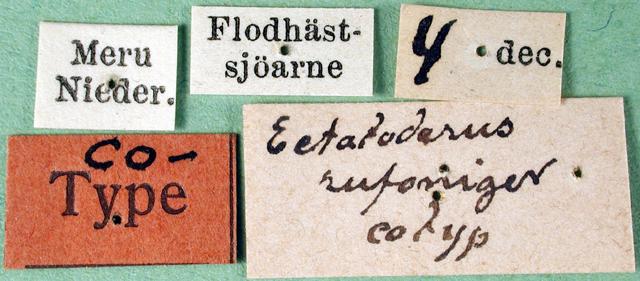 Meru
Nieder.
Flodhäst-
sjöarne
4 dec.
co-
Type
Ectatoderus
rufoniger
cotyp